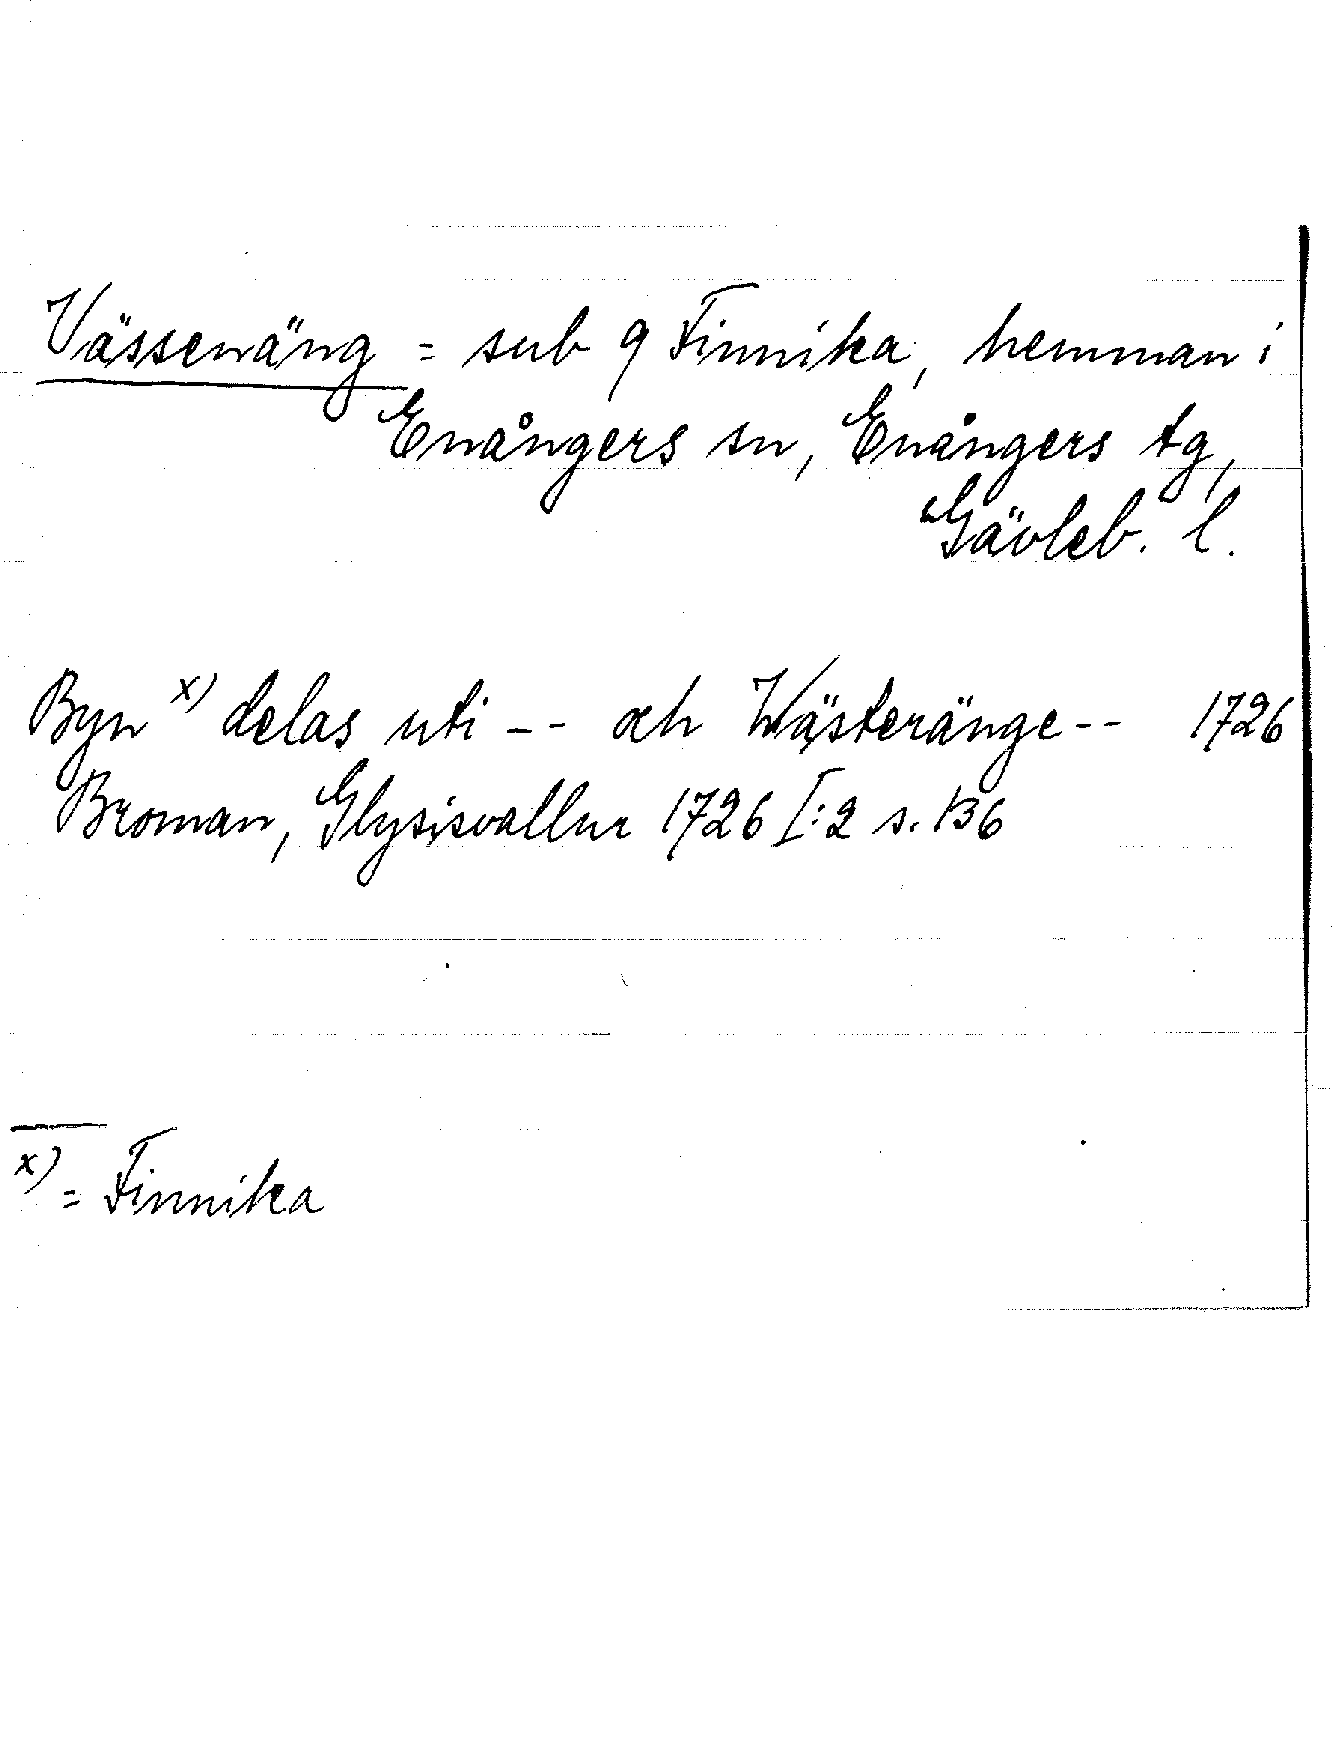 Vässenäng = sub 9 Finnika, hemman i
Enångers sn, Enångers tg,
Gävleb. l.
Byn x) delas uti -- och Wästeränge -- 1726
Broman, Glysisvallur 1726 I:2 s. 136
x) = Finnika